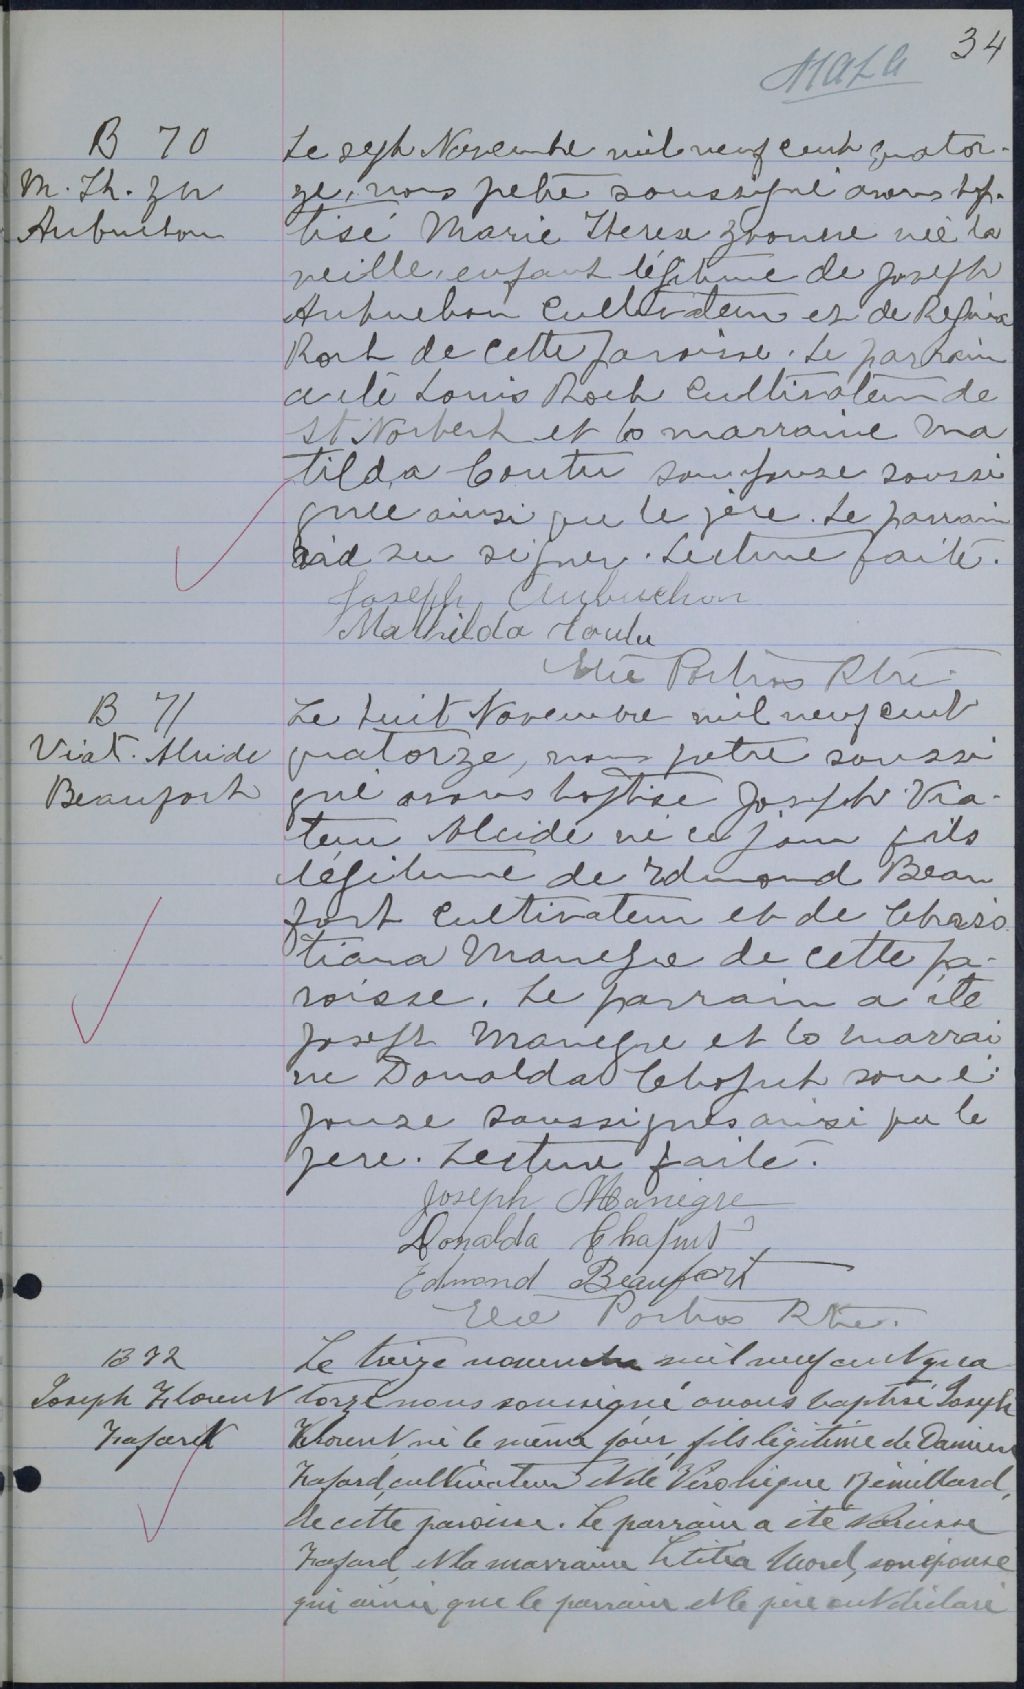 34
B 70
M. Th. Yv
Aubuchon
Le sept Novembre mil neuf cent quator-
ze, nous prêtre soussigné avons bap-
tisé Marie Therese Yvonne née la
veille, enfant légitime de Joseph
Aubuchon Cultivateur et de Regina
Roch de cette paroisse. Le parrain
a été Louis Roch Cultivateur de
St Norbert et la marraine Ma
tilda Coutu son epouse soussi
gnée ainsi que le père. Le parrain
su signer. Lecture faite.
Joseph Aubuchon
Mathilda Coutu
Ptre
B 71
Viat. Alcide
Beaufort
Le huit Novembre mil neuf cent
quatorze, nous prêtre soussi
gné avons baptise Joseph Via-
teur Alcide né ce jour fils
légitime de Edmond Beau
fort Cultivateur et de Chris
tiana Manegre de cette pa-
roisse. Le parrain a été
Joseph Manegre et la marrai
ne Donalda Chaput son é
pouse soussignés ainsi que le
père. Lecture faite.
Joseph Manègre
Donalda Chaput
Edmond Beaufort
Ptre.
B 72
Joseph Florent
Fafard
Le treize novembre mil neuf cent qua
torze nous soussigné avons baptisé Joseph
Florent né le même jour, fils légitime de Damien
Fafard, cultivateur et de Véronique Rémillard,
de cette paroisse. Le parrain a été Narcisse
Fafard et la marraine Létitia Morel, son épouse
qui ainsi que le parrain et le père ont déclaré